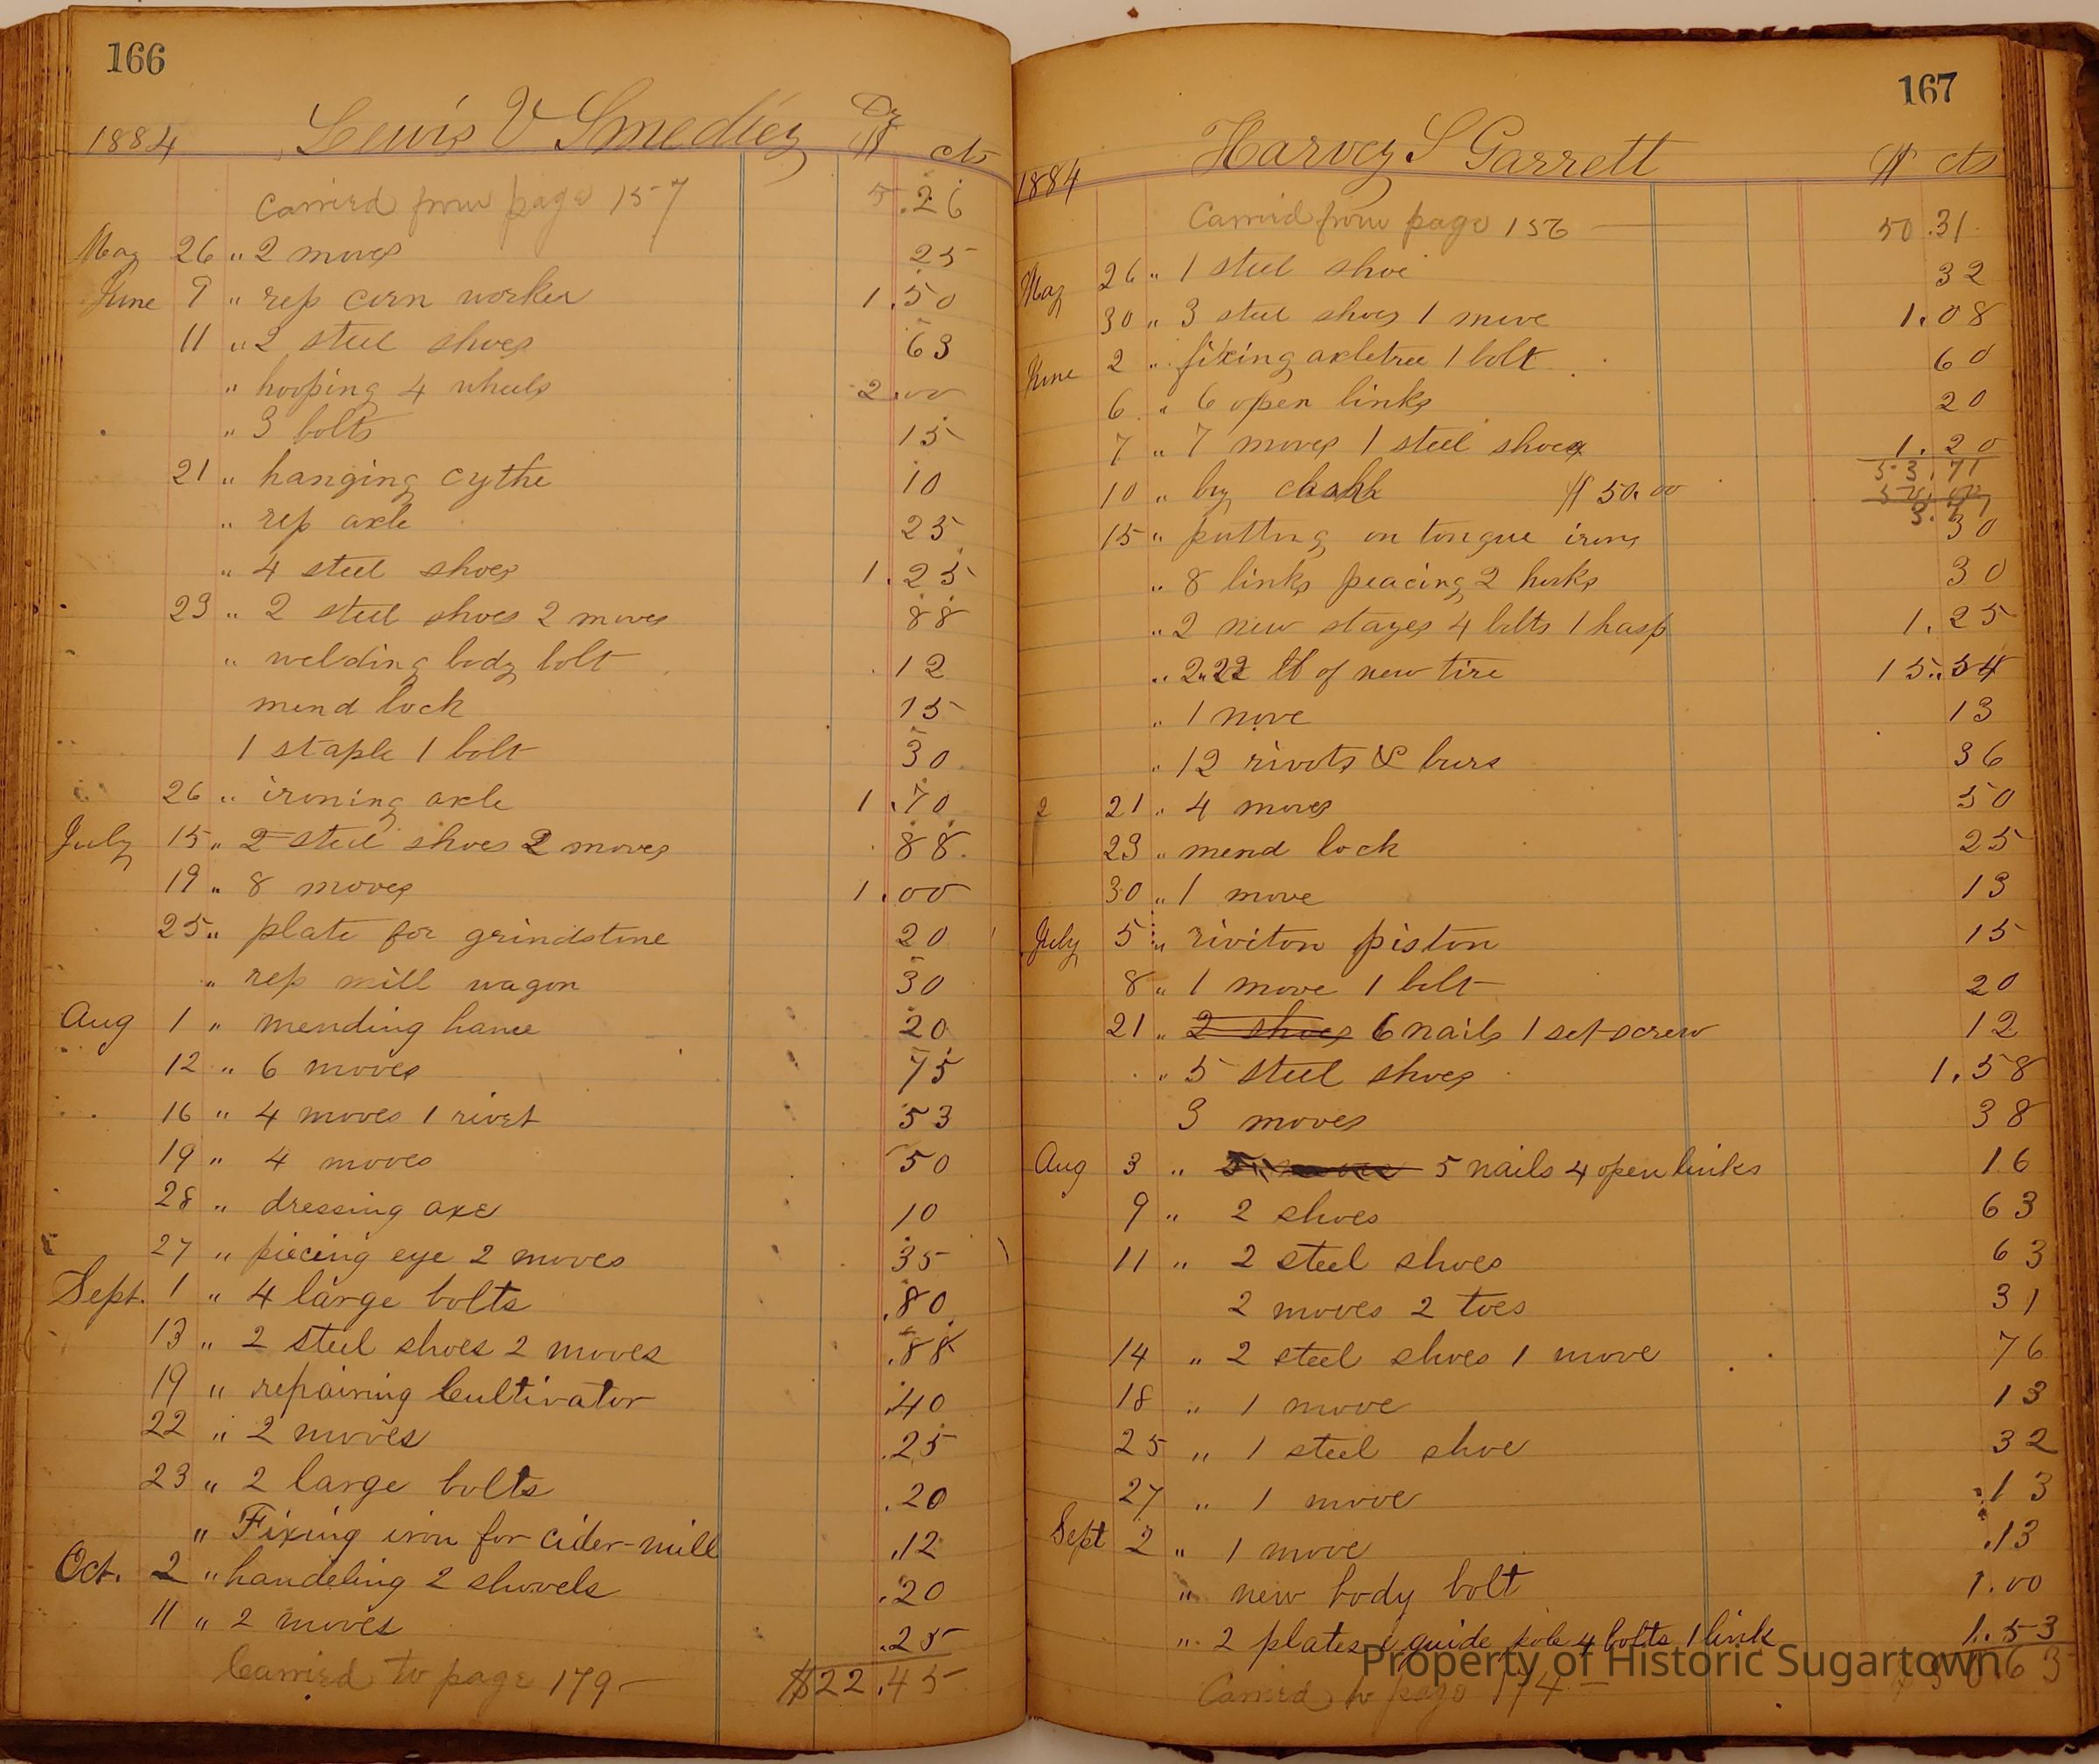 166
1884 Lewis V Smedley Dr $ cts
Carried from page 157 5.26
May 26 " 2 moves 25
June 9 " rep corn worker 1.50
11 " 2 steel shoes 63
" hooping 4 wheels 2.00
" 3 bolts 15
21 " hanging cythe 10
" rep axle 25
" 4 steel shoes 1.25
23 " 2 steel shoes 2 moves 88
" welding body bolt 12
mend lock 15
1 staple 1 bolt 30
26 " ironing axle 1.70
July 15 " 2 steel shoes 2 moves 88
19 " 8 moves 1.00
25 " plate for grindstone 20
" rep mill wagon 30
Aug 1 " mending hame 20
12 " 6 moves 75
16 " 4 moves 1 rivet 53
19 " 4 moves 50
28 " dressing axe 10
27 " piecing eye 2 moves 35
Sept. 1 " 4 large bolts .80
13 " 2 steel shoes 2 moves .88
19 " repairing Cultivator .40
22 " 2 moves .25
23 " 2 large bolts .20
" Fixing iron for cider-mill .12
Oct. 2 " handeling 2 shovels .20
11 " 2 moves .25
Carried to page 179 $22.45
167
1884 Harvey S Garrett $ cts
Carried from page 156 50.31
May 26 " 1 steel shoe 32
30 " 3 steel shoes 1 move 1.08
June 2 " fixing axletree 1 bolt 60
6 " 6 open links 20
7 " 7 moves 1 steel shoe 1.20
53.71
10 " by cash $50.00 50.00
3.71
15 " putting on tongue irons 30
" 8 links peacing 2 hooks 30
" 2 new stayes 4 bolts 1 hasp 1.25
" 222 lb of new tire 15.54
" 1 move 13
" 12 rivots & burs 36
2 21 " 4 moves 50
23 " mend lock 25
30 " 1 move 13
July 5 " riviton piston 15
8 " 1 move 1 bolt 20
21 " 2 shoes 6 nails 1 set-screw 12
" 5 steel shoes 1.58
3 moves 38
Aug 3 " 5 nails 4 open links 16
9 " 2 shoes 63
11 " 2 steel shoes 63
2 moves 2 toes 31
14 " 2 steel shoes 1 move 76
18 " 1 move 13
25 " 1 steel shoe 32
27 " 1 move .13
Sept 2 " 1 move .13
" new body bolt 1.00
" 2 plates guide pole 4 bolts 1 link 1.53
Property of Historic Sugartown
Carried to page 174 63